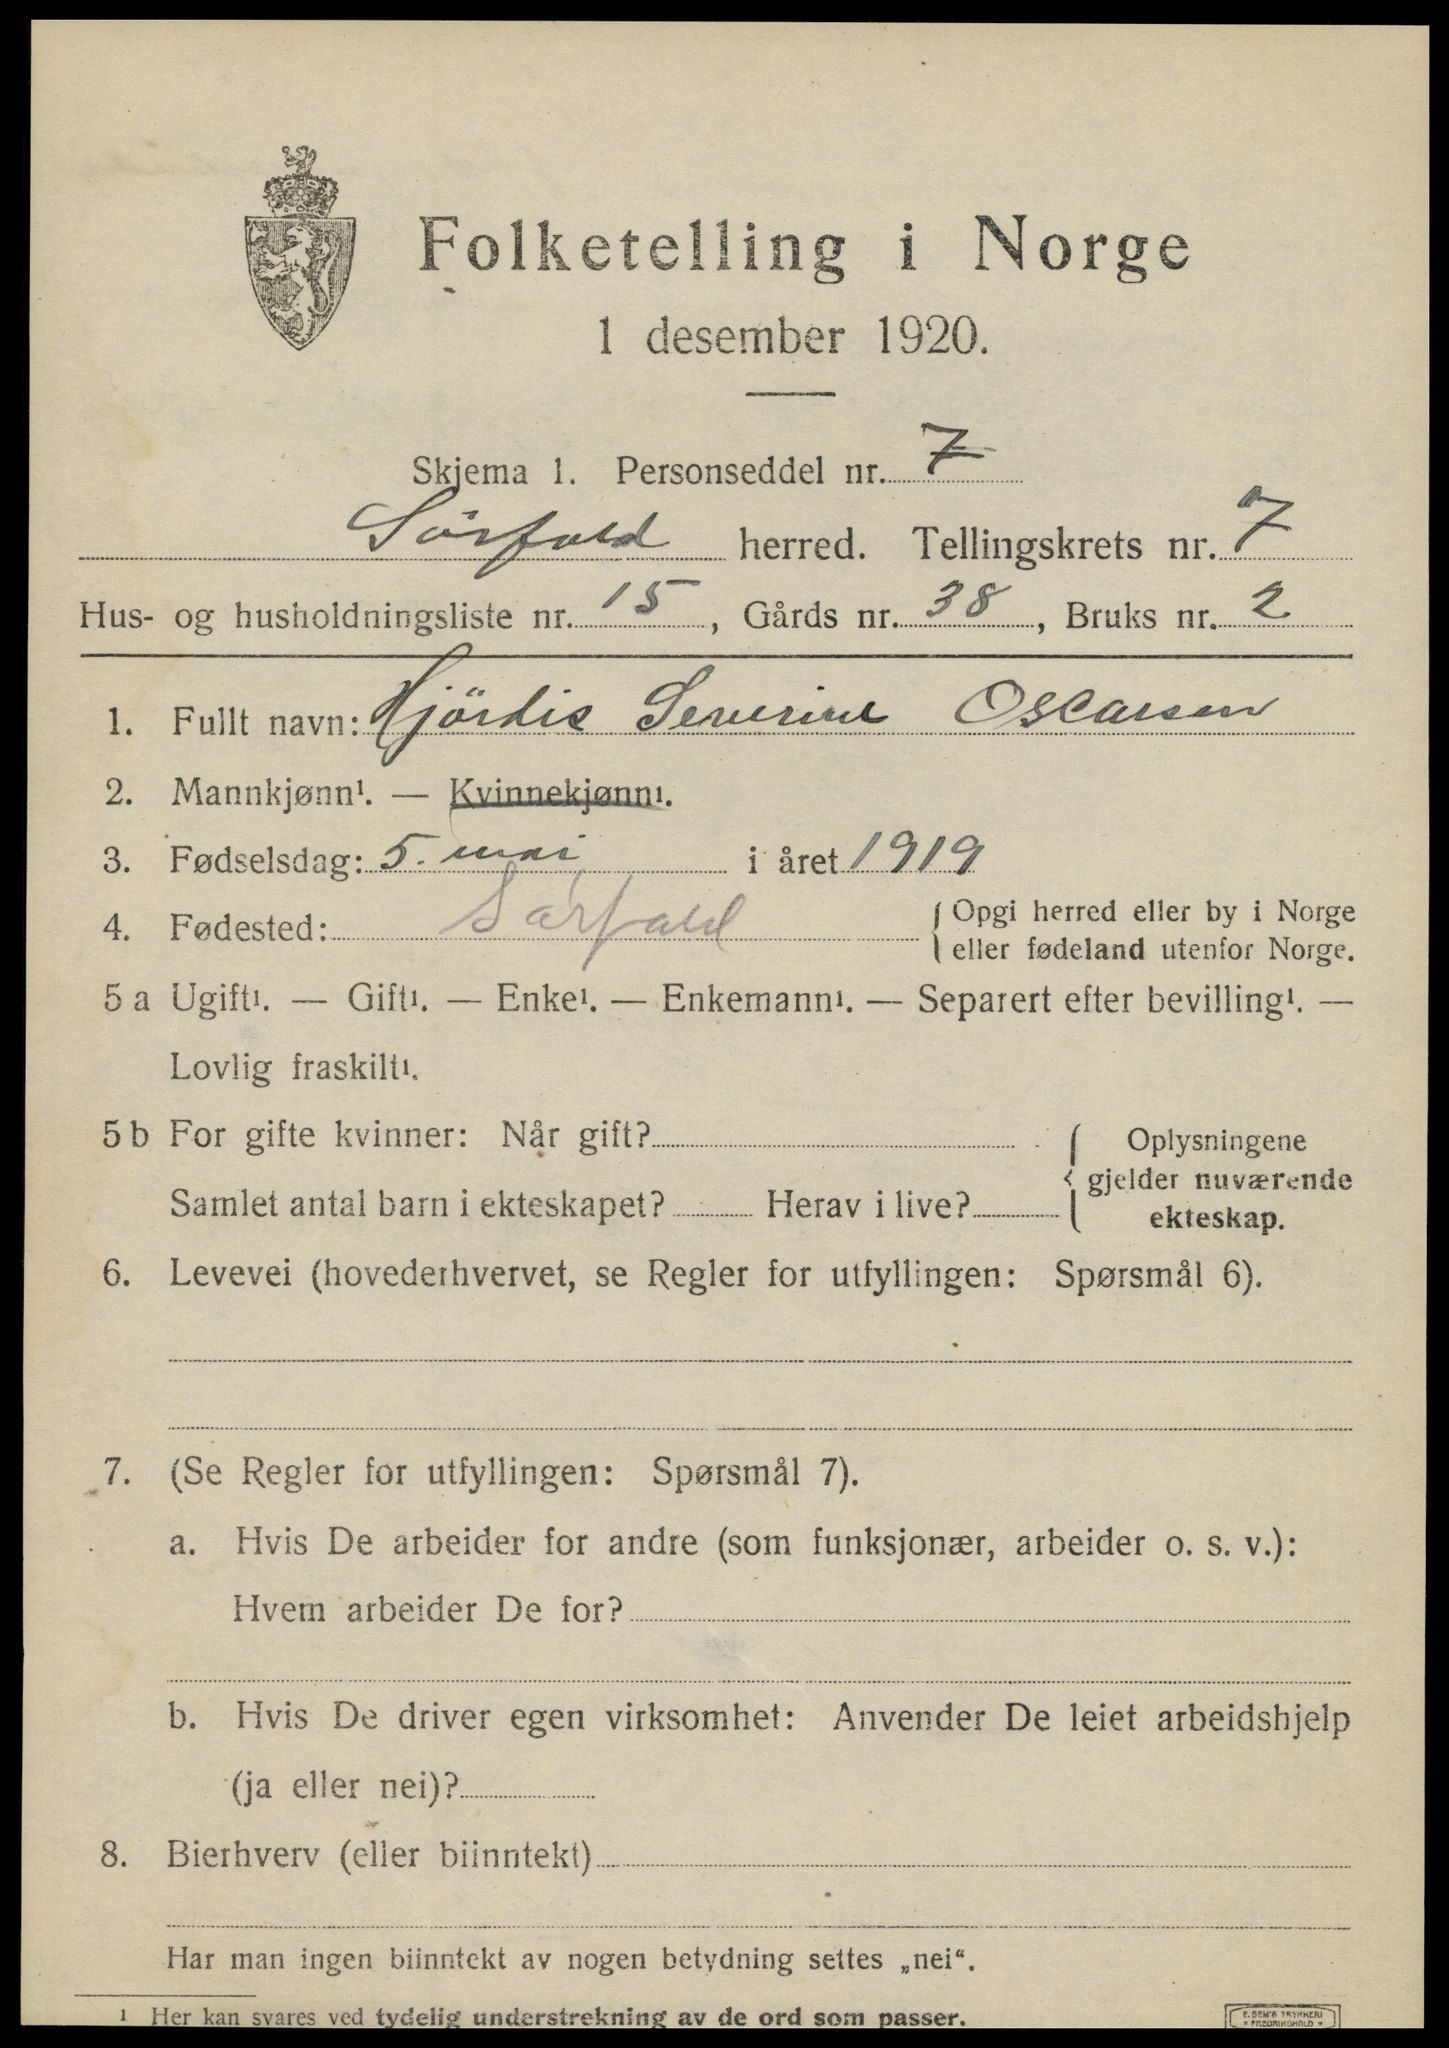 Folketelling i Norge
1 desember 1920.
Skjema 1. Personseddel nr. 7
Sörfold herred. Tellingskrets nr. 7
Hus- og husholdningsliste nr. 15, Gårds nr. 38, Bruks nr. 2
1. Fullt navn: Hjördis Severine Oscarsen
2. Mannkjønn¹. — Kvinnekjønn¹.
3. Fødselsdag: 5. mai i året 1919
4. Fødested: Sørfold { Opgi herred eller by i Norge
eller fødeland utenfor Norge.
5 a Ugift¹. — Gift¹. — Enke¹. — Enkemann¹. — Separert efter bevilling¹. —
Lovlig fraskilt¹.
5 b For gifte kvinner: Når gift? { Oplysningene
gjelder nuværende
Samlet antal barn i ekteskapet? Herav i live? ekteskap.
6. Levevei (hovederhvervet, se Regler for utfyllingen: Spørsmål 6).
7. (Se Regler for utfyllingen: Spørsmål 7).
a. Hvis De arbeider for andre (som funksjonær, arbeider o. s. v.):
Hvem arbeider De for?
b. Hvis De driver egen virksomhet: Anvender De leiet arbeidshjelp
(ja eller nei)?
8. Bierhverv (eller biinntekt)
Har man ingen biinntekt av nogen betydning settes „nei“.
¹ Her kan svares ved tydelig understrekning av de ord som passer.
E. SEM'S TRYKKERI
• FREDRIKSHALD •